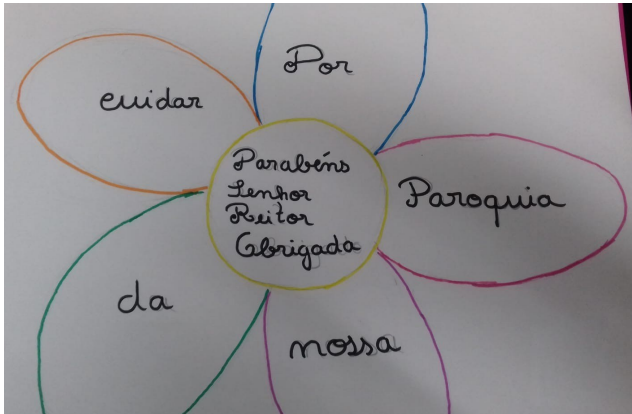 Parabéns
Senhor
Reitor
Obrigada
Por
cuidar
da
nossa
Paroquia